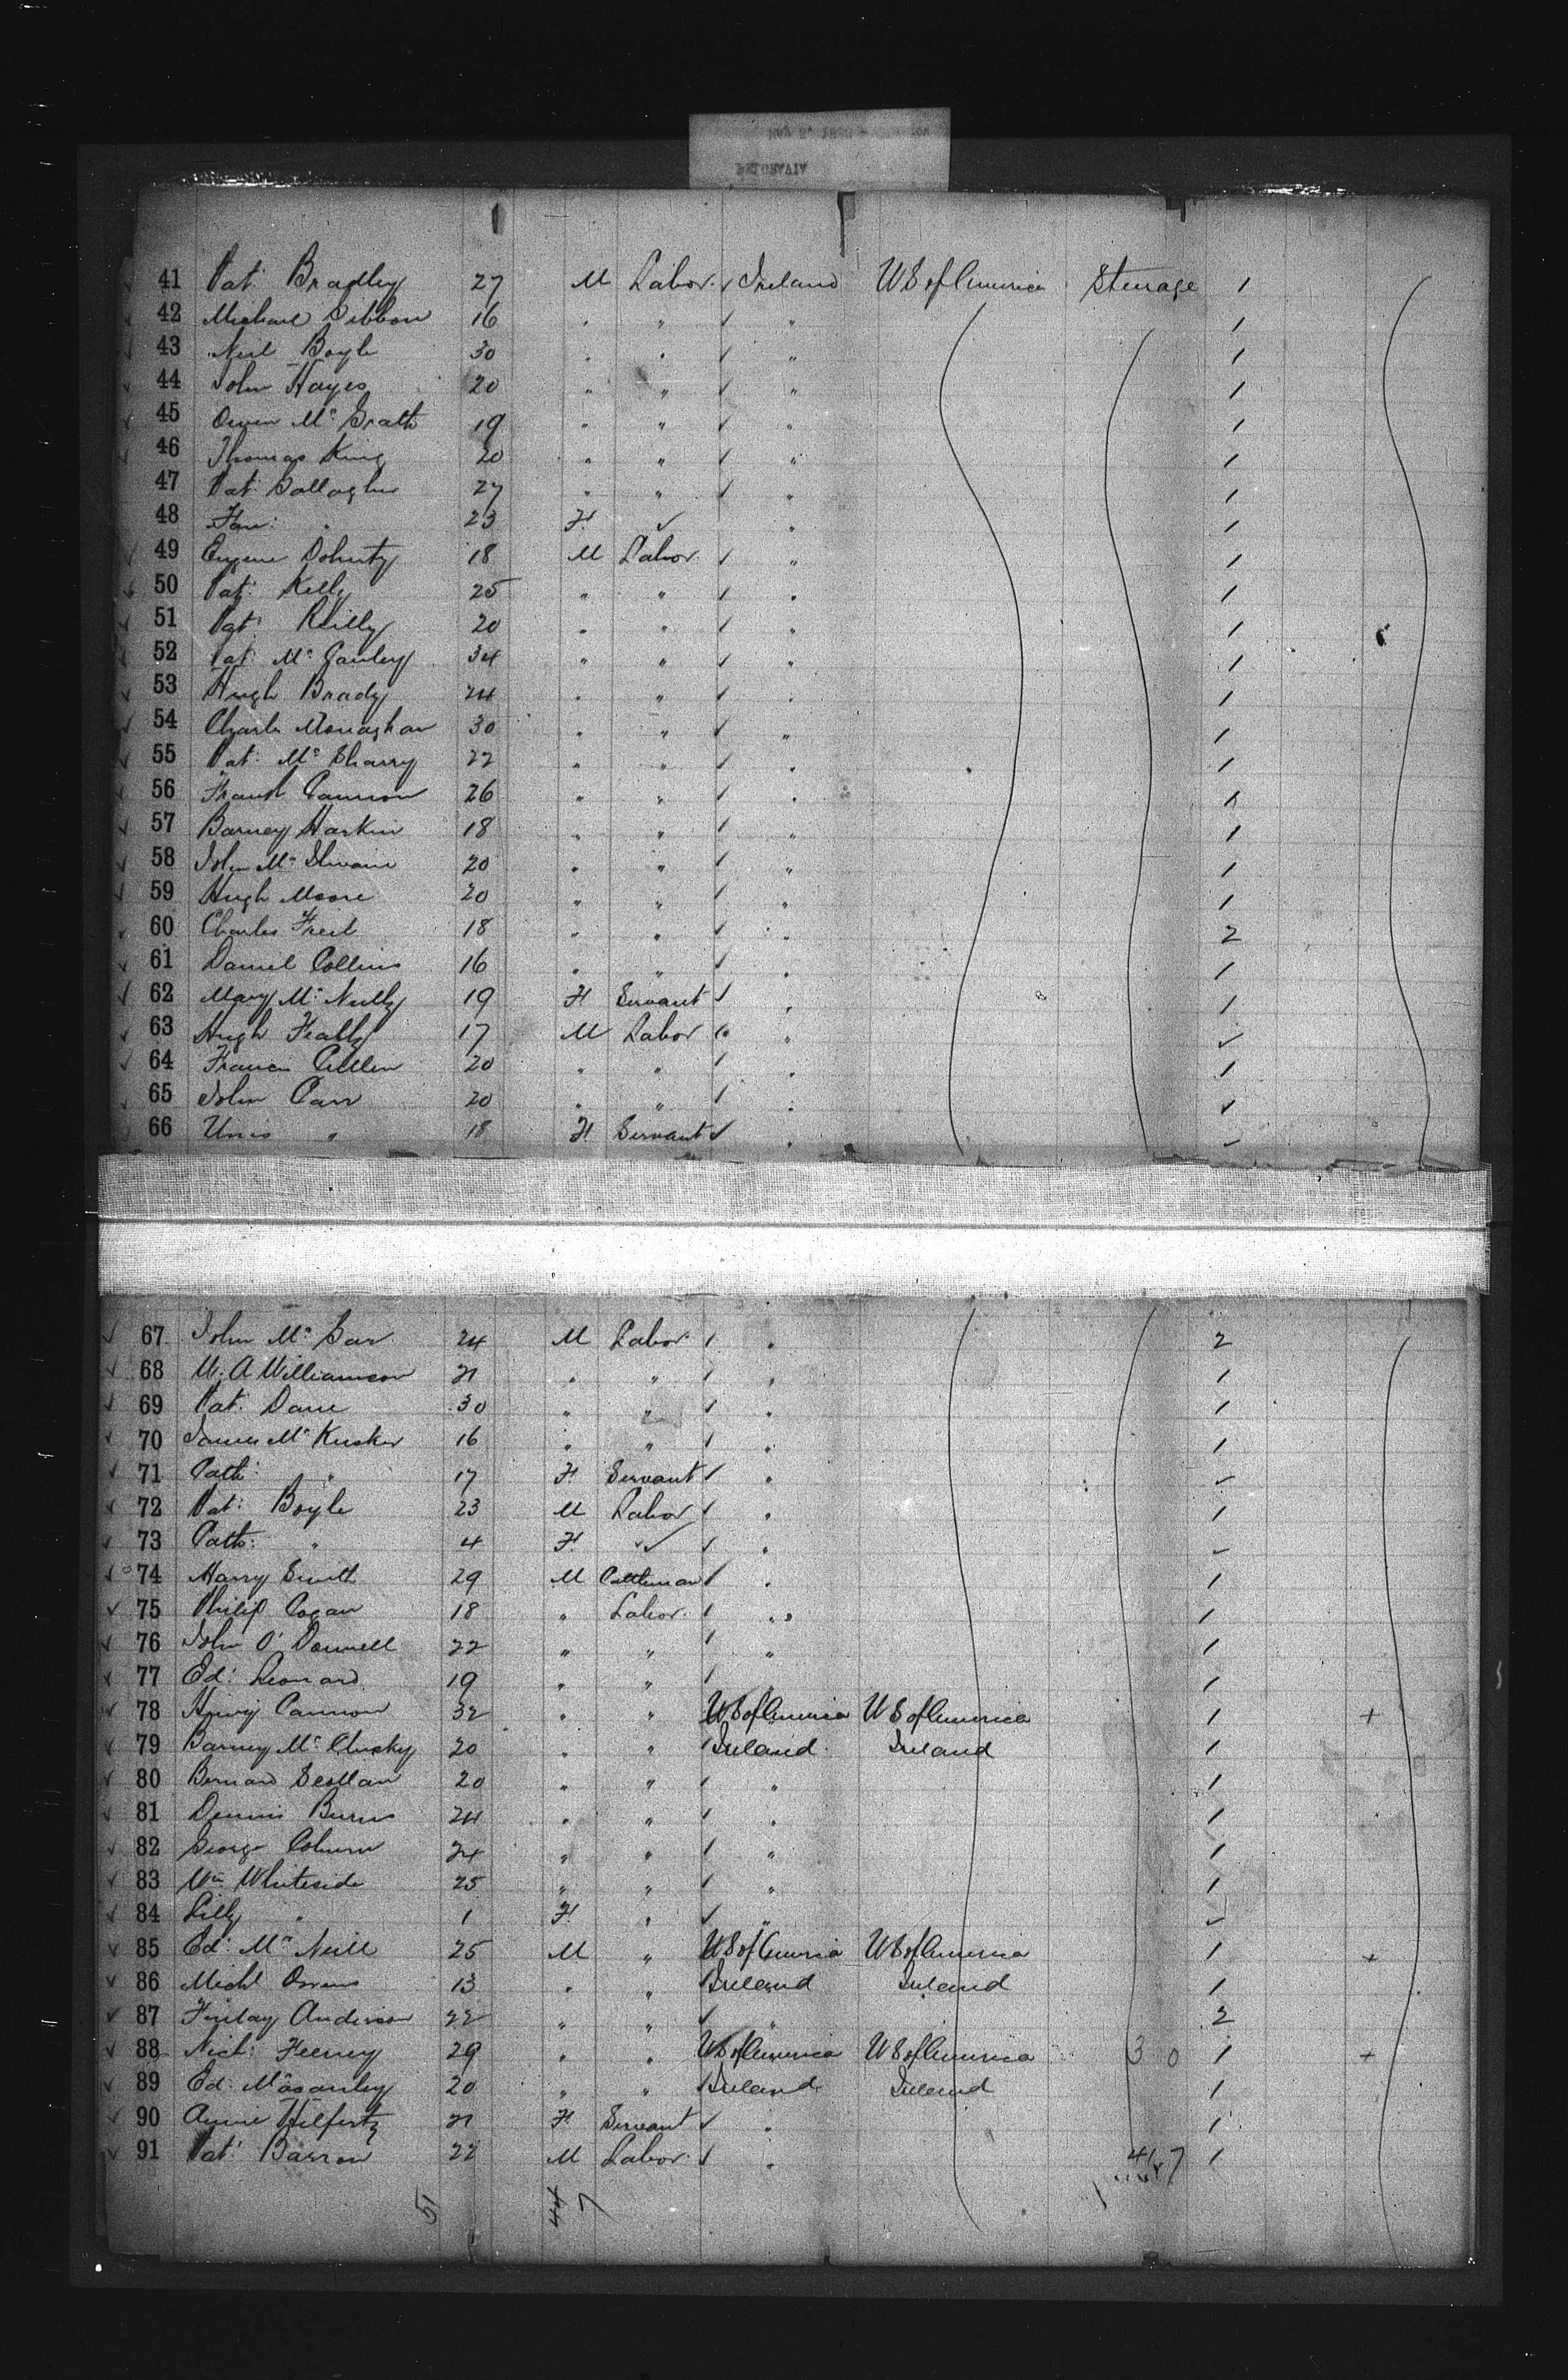 41 Pat: Bradley 27 M Labor Ireland US of America Steerage 1
42 Michael Gibbon 16 " " " 1
43 Neil Boyle 30 " " " 1
44 John Hayes 20 " " " 1
45 Owen Mc Grath 19 " " " 1
46 Thomas King 20 " " " 1
47 Pat: Gallagher 27 " " " 1
48 Fan: " 23 F ✓ " 1
49 Eugene Doherty 18 M Labor " 1
50 Pat: Kelly 25 " " " 1
51 Pat: Reilly 20 " " " 1
52 Pat: Mc Ganley 34 " " " 1
53 Hugh Brady 24 " " " 1
54 Charles Monaghan 30 " " " 1
55 Pat: Mc Sharry 22 " " " 1
56 Frank Cannon 26 " " " 1
57 Barney Harkin 18 " " " 1
58 John Mc Ilwain 20 " " " 1
59 Hugh Moore 20 " " " 1
60 Charles Freil 18 " " " 2
61 Daniel Collins 16 " " " 1
62 Mary Mc Nully 19 F Servant " 1
63 Hugh Feally 17 M Labor " ✓
64 Francis Cullen 20 " " " 1
65 John Carr 20 " " " ✓
66 Unis " 18 F Servant " ✓
67 John Mc Gar 24 M Labor " 2
68 W. A Williamson 21 " " " 1
69 Pat: Dane 30 " " " 1
70 James Mc Kusker 16 " " " 1
71 Cath: " 17 F Servant " ✓
72 Pat: Boyle 23 M Labor " 1
73 Cath: " 4 F ✓ " ✓
74 Harry Smith 29 M Cattleman " 1
75 Philip Cogan 18 " Labor " 1
76 John O'Donnell 22 " " " 1
77 Ed: Leonard 19 " " " 1
78 Henry Cannon 32 " " US of America US of America 1 +
79 Barney Mc Clusky 20 " " Ireland Ireland 1
80 Bernard Scollan 20 " " " 1
81 Dennis Burns 24 " " " 1
82 George Coburn 24 " " " 1
83 Wm Whiteside 25 " " " 1
84 Lilly " 1 F " " ✓
85 Ed: Mc Neill 25 M " US of America US of America 1 +
86 Michl Owens 13 " " Ireland Ireland 1
87 Finlay Anderson 22 " " " 2
88 Nich: Feeney 29 " " US of America US of America 3 0 1 +
89 Ed: McGanley 20 " " Ireland Ireland 1
90 Annie Hilferty 21 F Servant " 1
91 Pat: Barron 22 M Labor " 1
51 44 7